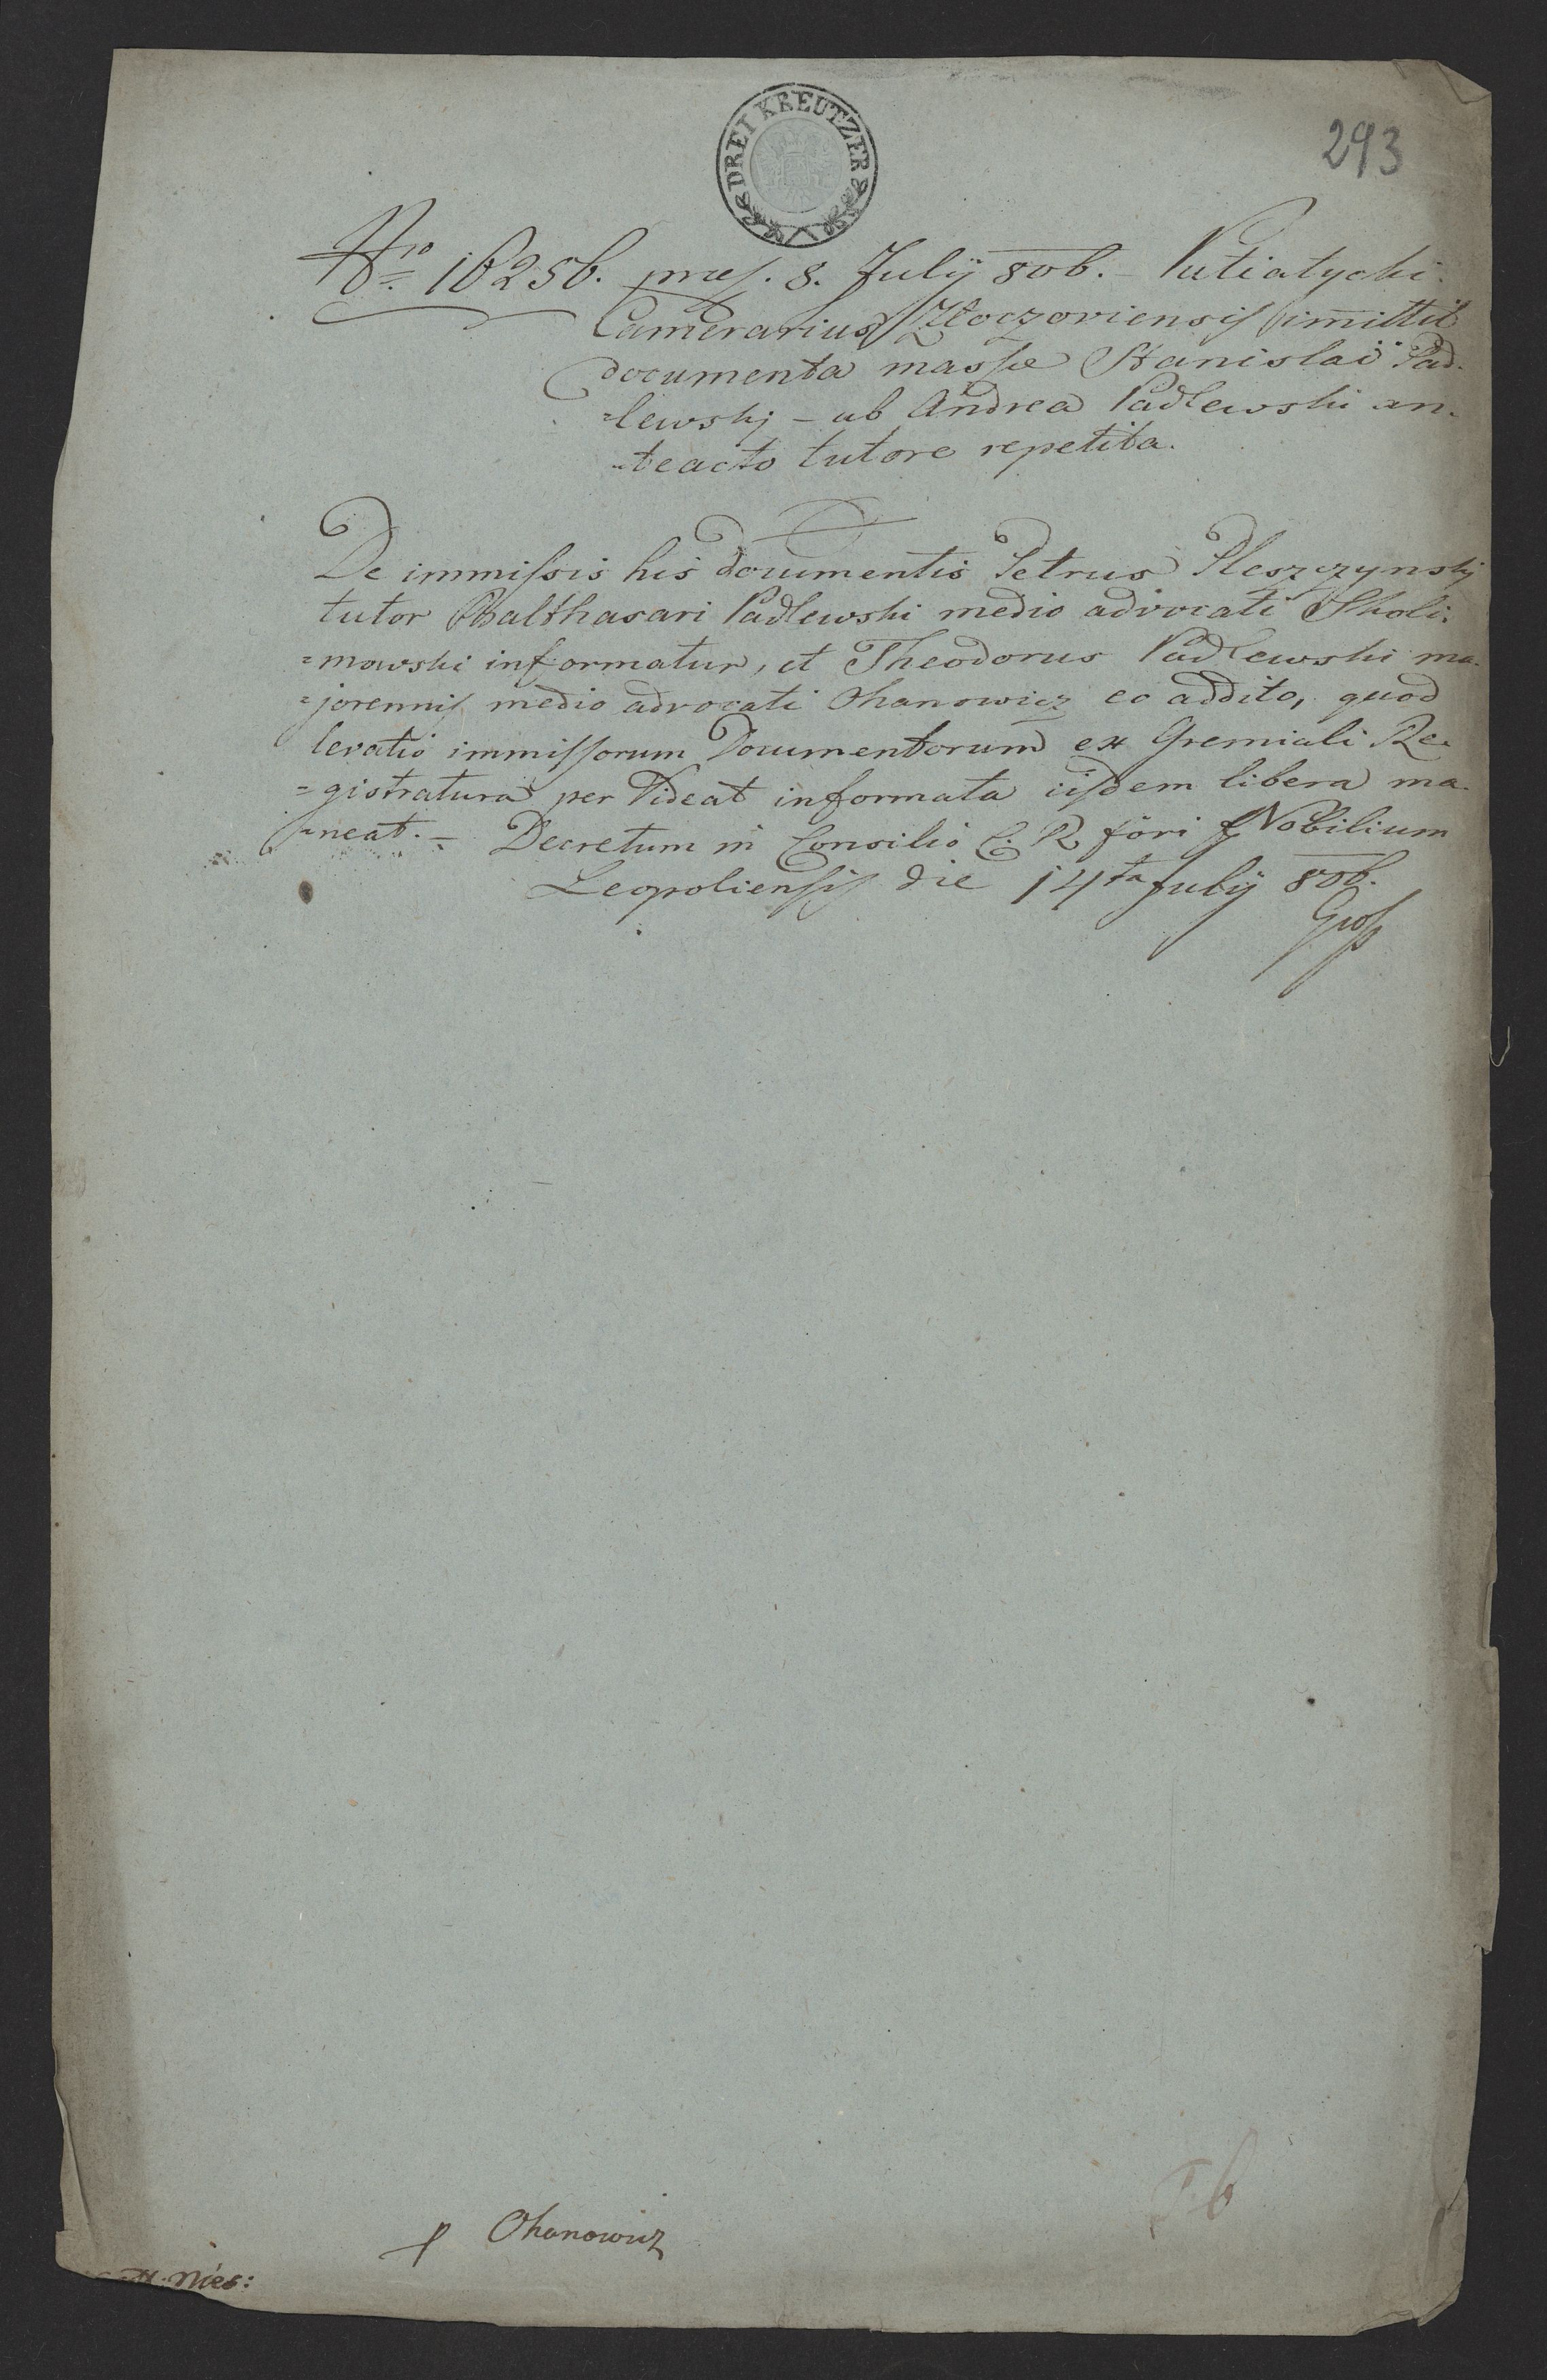 DREI KREUTZER
293
Nro 16256. præs. 8. July 806. – Putiatycki
Camerarius Złoczoviensis im̄ittit
documenta massæ Stanislai Pad-
=lewsky – ab Andrea Padlewski an-
=teacto tutore repetita.
De immissis his documentis Petrus Pleszczynsky
tutor Balthasari Padlewski medio advocati Skoli-
=mowski informatur, et Theodorus Padlewski ma-
=jorennis medio advocati Ohanowicz eo addito, quod
levatio immissorum Documentorum ex Gremiali Re-
=gistratura per Videat informata iisdem libera ma-
=neat. – Decretum in Consilio C. R. fori Nobilium
Leopoliensis die 14ta July 806.
Gross
p Ohanowicz